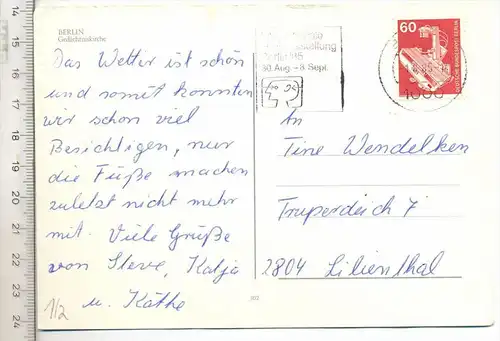 BERLIN
Gedächtniskirche
Das Wetter ist schön
und somit konnten
wir schon viel
Besichtigen, nur
die Füße machen
zuletzt nicht mehr
mit. Viele Grüße
von Steve, Katja
u. Käthe
1/2
Berlin '85
30 Aug. - 8 Sept.
60
DEUTSCHE BUNDESPOST BERLIN
An
Tine Wendelken
Truperdeich 7
2804 Lilienthal
14 15 16 17 18 19 20 21 22 23 24